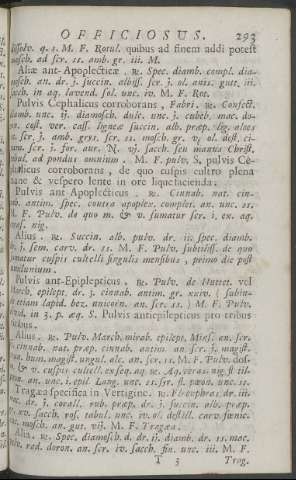 OFFICIOSUS. 293
dissolv. q. s. M. F. Rotul. quibus ad finem addi potest
mosch. ad scr. ss. amb. gr. iii. M.
Aliæ ant-Apoplecticæ. ℞. Spec. diamb. compl. dia-
mosch. an. dr. j. succin. albiss. scr. j. ol. anis. gutt. iii.
sacch. in aq. lavend. sol. unc. iv. M. F. Rot.
Pulvis Cephalicus corroborans, Fabri. ℞. Confect.
unc. ij. diamosch. dulc. unc. j. cubeb. mac.
cast. ver. cass. ligneæ succin. alb. præp. lig. aloes
scr. j. amb. gris. scr. ss. mosch. gr. v. ol. dest. ci-
scr. j. for. aur. N. vij. sacch. seu mannæ Christ.
ad pondus omnium. M. F. pulv. S. pulvis Ce-
phalicus corroborans, de quo cuspis cultro plena
mane & vespero lente in ore liquefacienda.
Pulvis ant-Apoplecticus. ℞. Cinnab. nat. cin-
nab. antim. spec. contra apoplex. complet. an. unc. ss.
M. F. Pulv. de quo m. & v. sumatur scr. i. ex. aq.
nig.
Alius. ℞. Succin. alb. pulv. dr. iii. spec. diamb.
j. sem. carv. dr. ss. M. F. Pulv. subtiliss. de quo
sumatur cuspis cultelli singulis mensibus, primo die post
novilunium.
Pulvis ant-Epilepticus. ℞. Pulv. de Guttet. vel
March. epilept. dr. j. cinnab. antim. gr. xxiv. ( subin-
etiam lapid. bez. unicorn. an. scr. ss. ) M. F. Pulv.
in 3. p. aq. S. Pulvis antiepilepticus pro tribus
vicibus.
Alius. ℞. Pulv. March. mirab. epilept. Mins. an. scr.
cinnab. nat. præp. cinnab. antim. an. scr. j. magist.
hum. magist. ungul. alc. an. scr. ss. M. F. Pulv.
& v. cuspis cultell. ex seq. aq. ℞. Aq. ceras. nig.
an. unc. i. epil. Lang. unc. ss. syr. fl. pæon. unc. ss.
Tragæa specifica in Vertigine. ℞.
dr. j. corall. rub. præp. dr. j. succin. alb. præp.
xv. sacch. ros. tabul. unc. iv. ol. destill. carv. fœnic.
mosch. an. gut. vij. M. F. Tragæa.
Alia. ℞. Spec. diamosch. d. dr. ij. diamb. dr. ss. mac.
rad. doron. an. scr. iv. sacch. fin. unc. iii. M. F.
T 3 Trag.